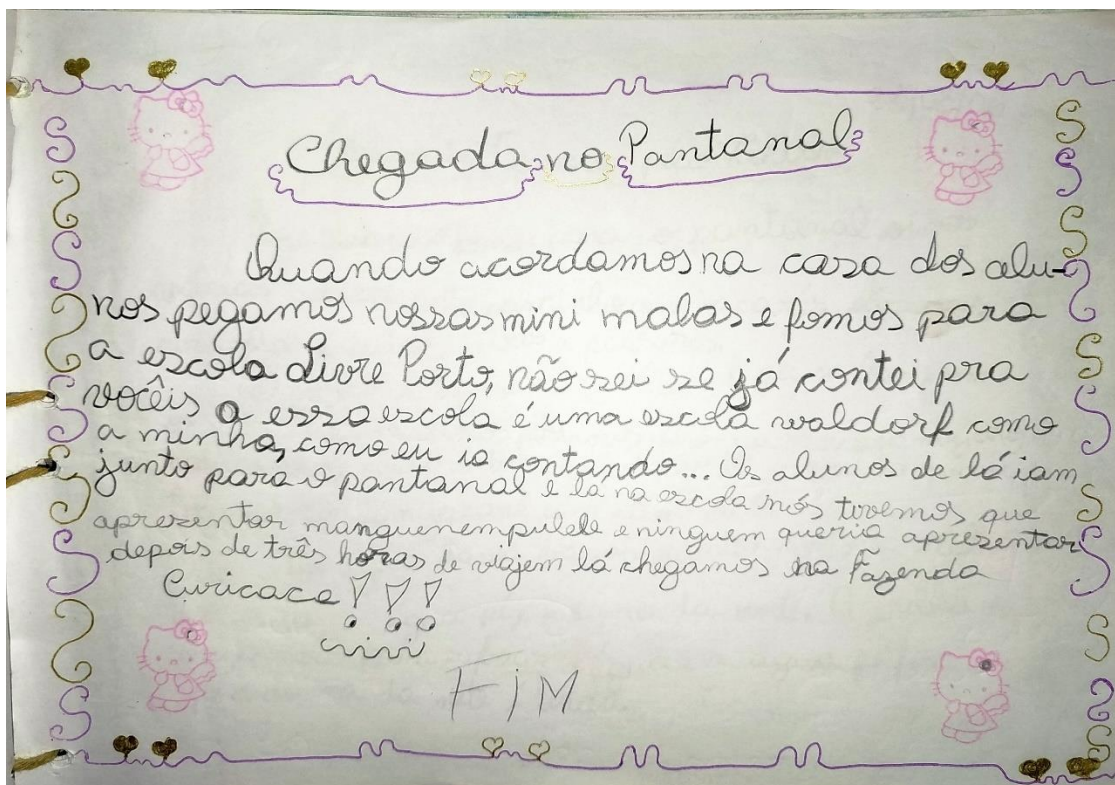 Chegada no Pantanal
Quando acordamos na casa dos alu-
nos pegamos nossas mini malas e fomos para
a escola Livre Porto, não sei se já contei pra
vocêis a essa escola é uma escola waldorf como
a minha, como eu ia contando... Os alunos de lá iam
junto para o pantanal e lá na escola nós tivemos que
apresentar manguenempulele e ninguem queria apresentar
depois de três horas de viajem lá chegamos na Fazenda
Curicaca!!!
FiM